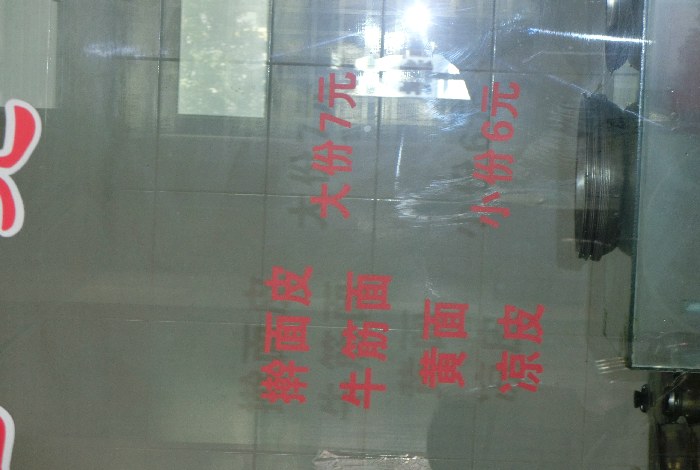 擀面皮
牛筋面
黄面
凉皮
大份7元
小份6元